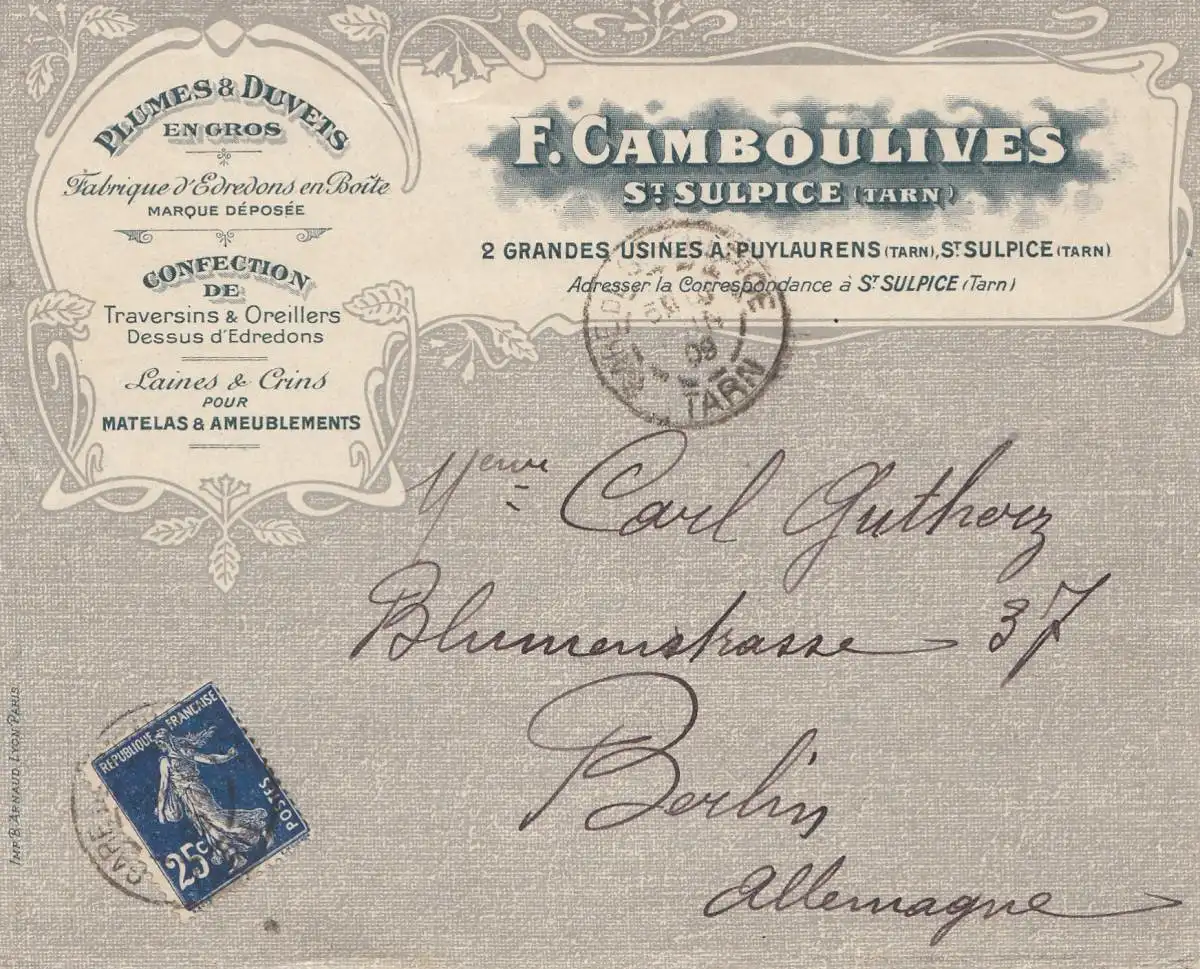 PLUMES & DUVETS
EN GROS
Fabrique d'Edredons en Boîte
MARQUE DÉPOSÉE
CONFECTION
DE
Traversins & Oreillers
Dessus d'Edredons
Laines & Crins
POUR
MATELAS & AMEUBLEMENTS
F. CAMBOULIVES
ST SULPICE (TARN)
2 GRANDES USINES A: PUYLAURENS (TARN), ST SULPICE (TARN)
Adresser la Correspondance à ST SULPICE (Tarn)
GARE DE
09
TARN
Carl Gutherz
Blumenstrasse 37
Berlin
Allemagne
REPUBLIQUE FRANÇAISE
POSTES
25c
GARE
IMP. B. ARNAUD, LYON-PARIS.